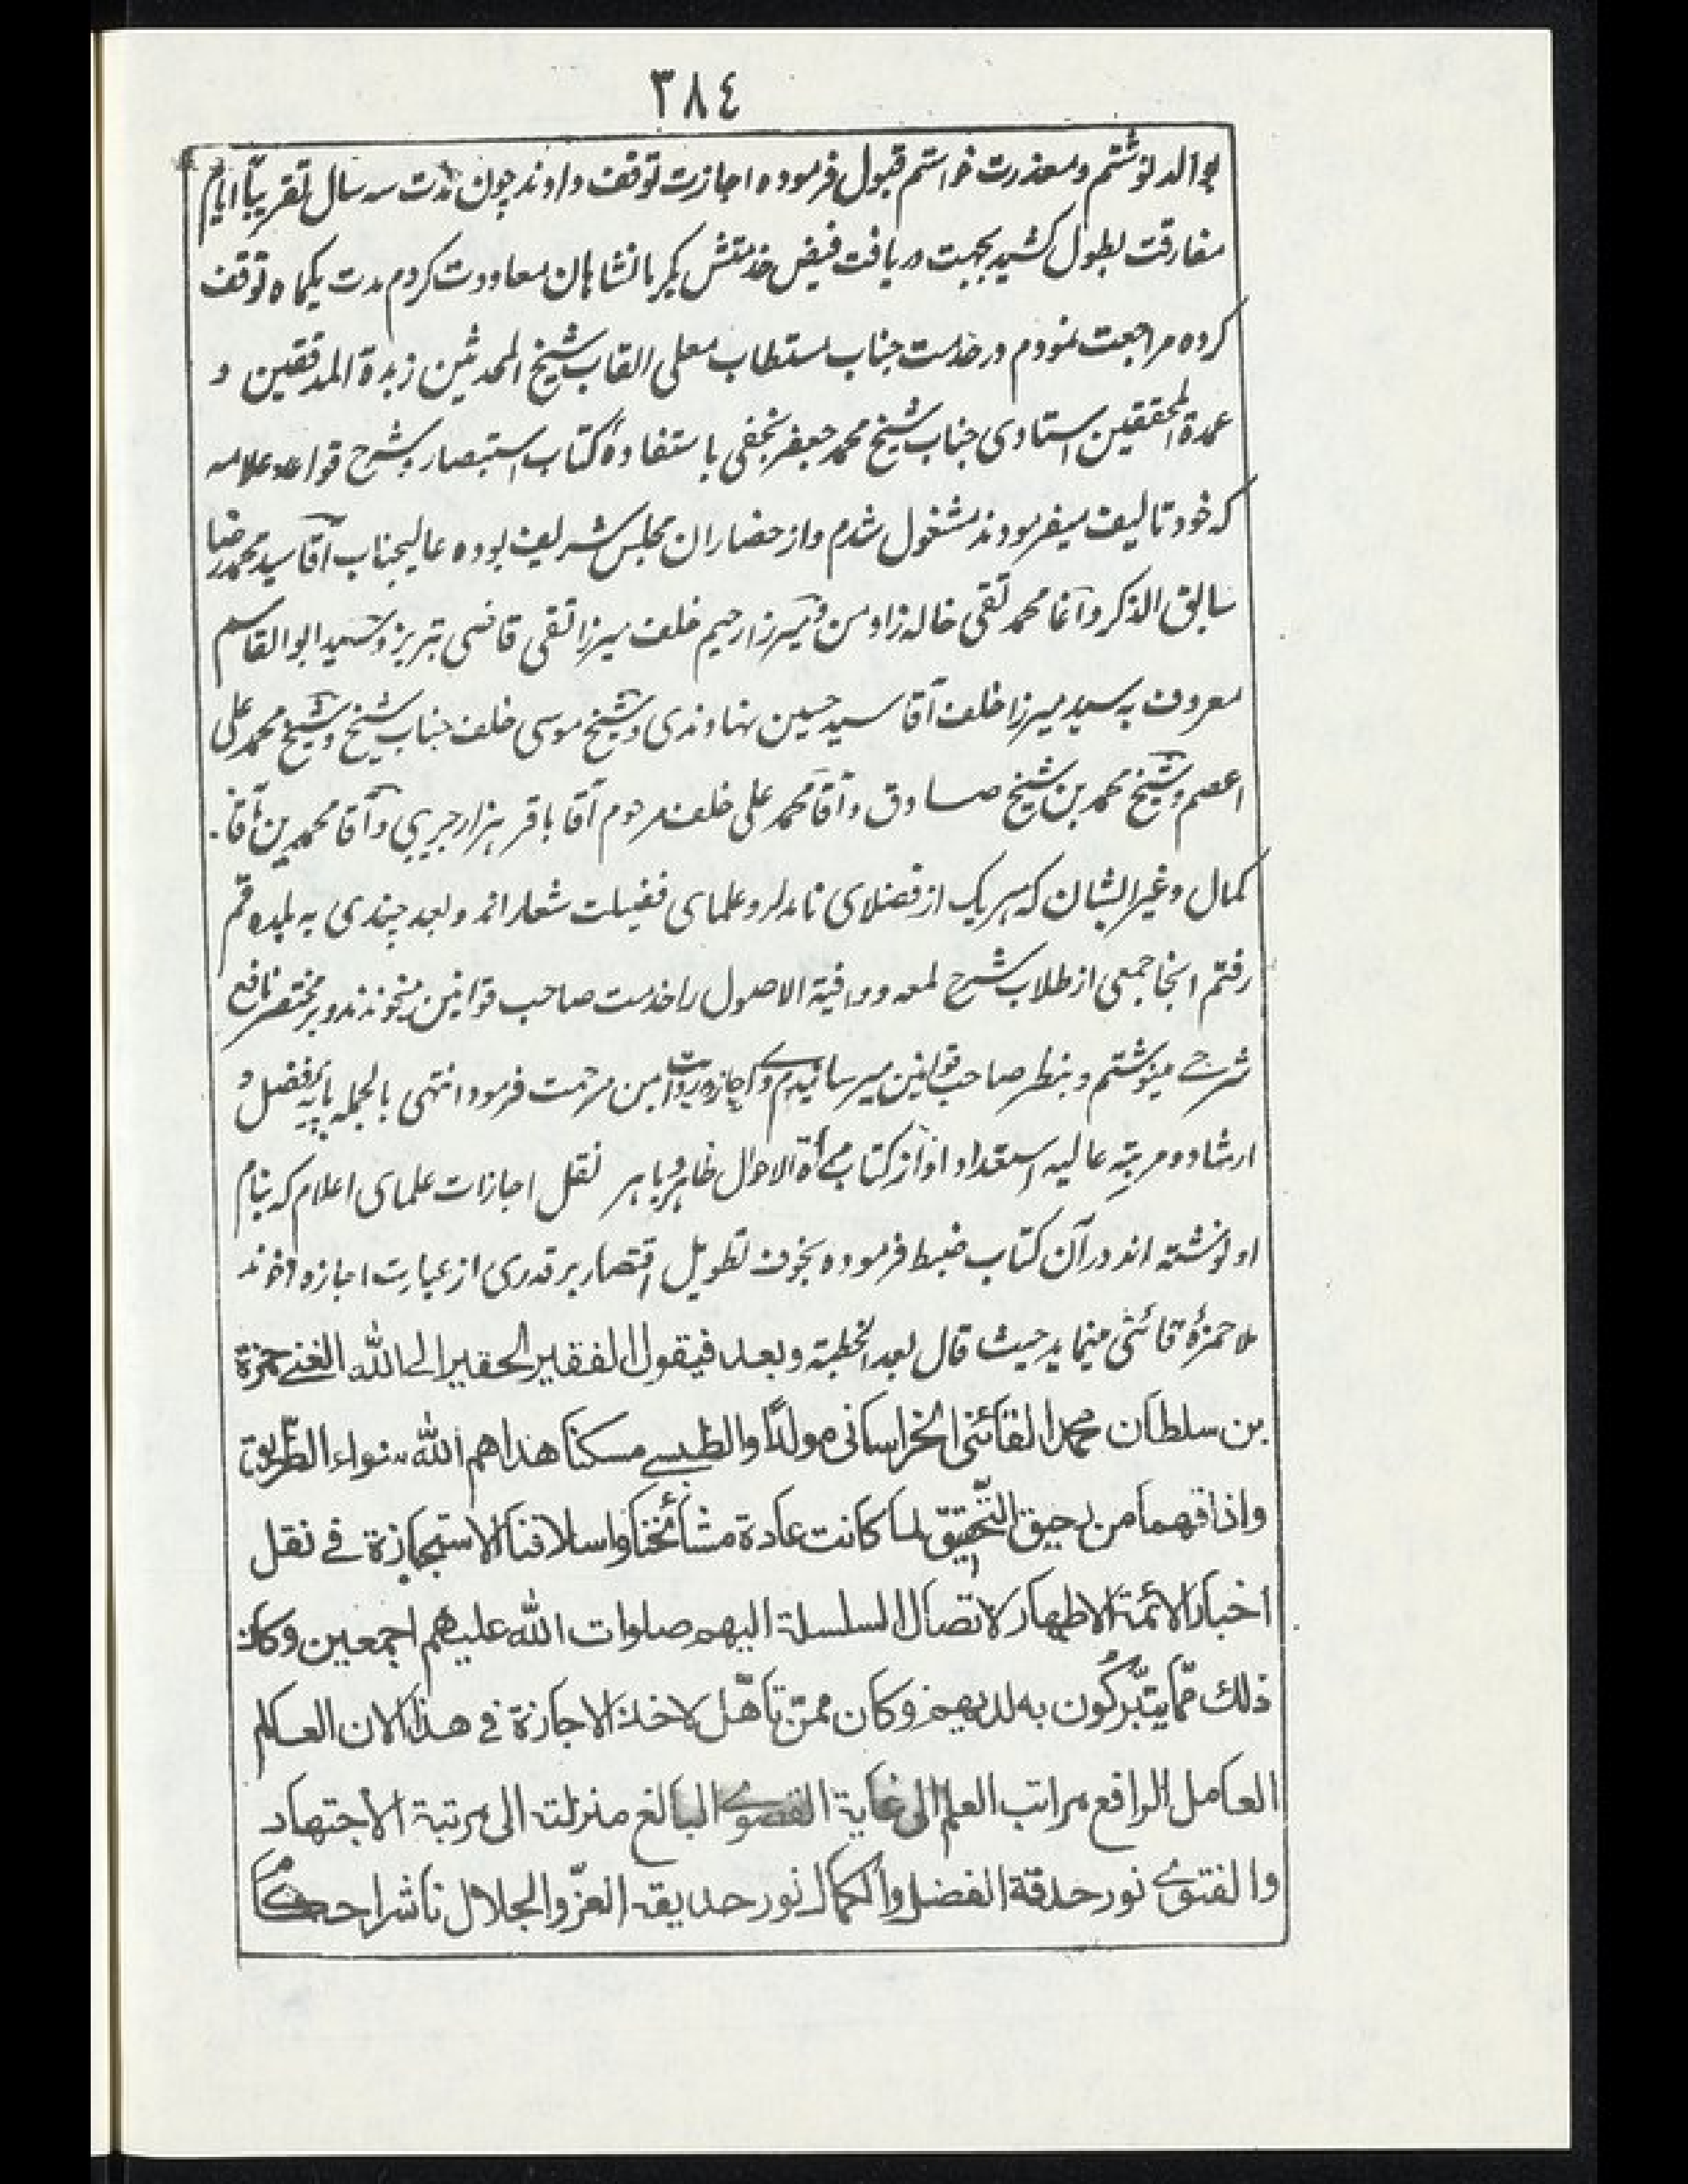 ٣٨٤
بوالد نوشتم و معذرت خواستم قبول فرموده اجازت توقف دادند چون مدت سه سال تقریباً ایام
مفارقت بطول کشید بجهت دریافت فیض خدمتش بکرمانشاهان معاودت کردم مدت یکماه توقف
کرده مراجعت نمودم در خدمت جناب مستطاب معلی القاب شیخ المحدثین زبدة المدققین و
عمدة المحققین استادی جناب شیخ محمد جعفر نجفی باستفادهٔ کتاب استبصار و شرح قواعد علامه
که خود تالیف میفرمودند مشغول شدم و از حضاران مجلس شریف بوده عالیجناب آقا سید محمد رضا
سابق الذکر و آغا محمد تقی خاله زاد من و میرزا رحیم خلف میرزا تقی قاضی تبریز و سید ابو القاسم
معروف به سید میرزا خلف آقا سید حسین نهاوندی و شیخ موسی خلف جناب شیخ و شیخ محمد علی
اعصم و شیخ محمد بن شیخ صادق و آقا محمد علی خلف مرحوم آقا باقر هزارجریبی و آقا محمد بن آقا
کمال و غیر ایشان که هر یک از فضلای نامدار و علمای فضیلت شعار اند و بعد چندی به بلده قم
رفتم انجا جمعی از طلاب شرح لمعه و وافیة الاصول را خدمت صاحب قوانین میخوندند و بر مختصر نافع
شرحے مینوشتم و بنظر صاحب قوانین میرسانیدم وے اجازه روایت بمن مرحمت فرمود انتهی بالجمله پایه فضل و
ارشاد و مرتبه عالیه استعداد او از کتاب مرأة الاحوال ظاهر و باهر نقل اجازات علمای اعلام که بنام
او نوشته اند در آن کتاب ضبط فرموده بخوف تطویل اقتصار بر قدری از عبارت اجازه اخوند
ملا حمزهٔ قائنی مینماید حیث قال بعد الخطبة وبعد فیقول الفقیر الحقیر الی الله الغنے حمزة
بن سلطان محمد القائنی الخراسانی مولداً والطبسے مسکنا هداهم الله سواء الطریق
واذاقهما من رحیق التحقیق لما کانت عادة مشائخنا واسلافنا الاستجازة فے نقل
اخبار الائمة الاطهار لاتصال السلسلة الیهم صلوات الله علیهم اجمعین وکان
ذلك مما یتبرکون به لدیهم وکان ممن تاهل لاخذ الاجازة فے هذا الان العالم
العامل الرافع مراتب العلم الی غایة القصوے البالغ منزلته الی مرتبة الاجتهاد
والفتوے نور حدقة الفضل والکمال نور حدیقة العز والجلال ناشر احکام